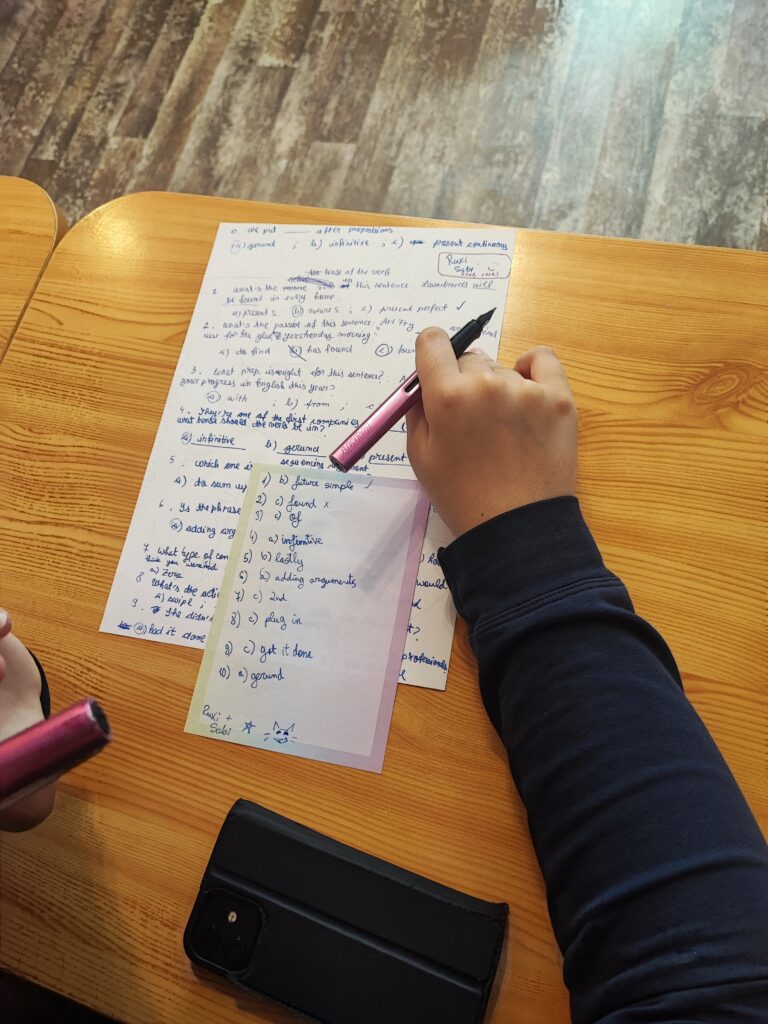 0. We put ____ after prepositions
a) gerund ; b) infinitive ; c) present continuous
Ruxi
Sabi
the tense of the verb
1. what's the in this sentence. downwards will
be found in every home.
a) present s. b) future s ; c) present perfect ✓
2. what's the passed of this sentence "Art Fry
use for the glue yesterday morning"
a) do find b) has found c) foun
3. What prep. is ought for this sentence?
your progress in English this year?
a) with ; b) from ; c
4. They're one of the first companies
what tense should the verb be in?
a) infinitive b) gerund present
5. which one is sequencing argument
a) do sum up
6. Is the phrase
a) adding arg
7. what type of con
a) zero
8. What's the acti
a) swipe ;
9. The distr
a) had it done
would
t?
professionals
1) b) future simple ✓
2) c) found x
3) c) of
4) a) infinitive
5) b) lastly
6) a) adding arguments
7) c) 2nd
8) c) plug in
9) c) got it done
10) a) gerund
Ruxi +
Sabi